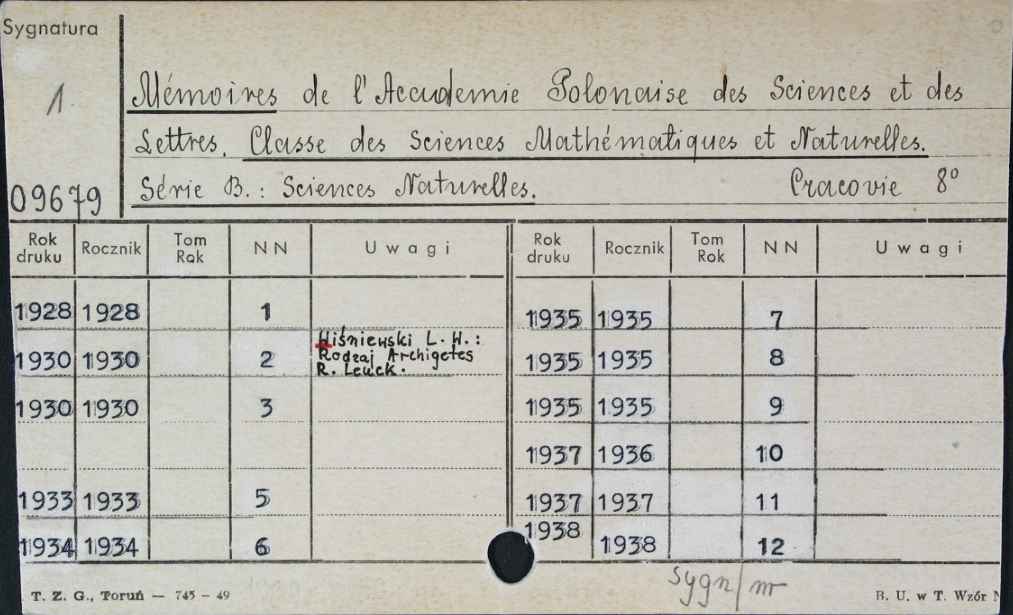 Sygnatura
1
09679
Mémoires de l'Accademie Polonaise des Sciences et des
Lettres. Classe des Sciences Mathématiques et Naturelles.
Série B.: Sciences Naturelles. Cracovie 8°
Rok druku Rocznik Tom Rok NN Uwagi Rok druku Rocznik Tom Rok NN Uwagi
1928 1928 1 1935 1935 7
1930 1930 2 Wiśniewski L. W.: Rodzaj Archigetes R. Leuck. 1935 1935 8
1930 1930 3 1935 1935 9
1937 1936 10
1933 1933 5 1937 1937 11
1934 1934 6 1938 1938 12
sygn/nr
T. Z. G., Toruń — 745 - 49 B. U. w T. Wzór